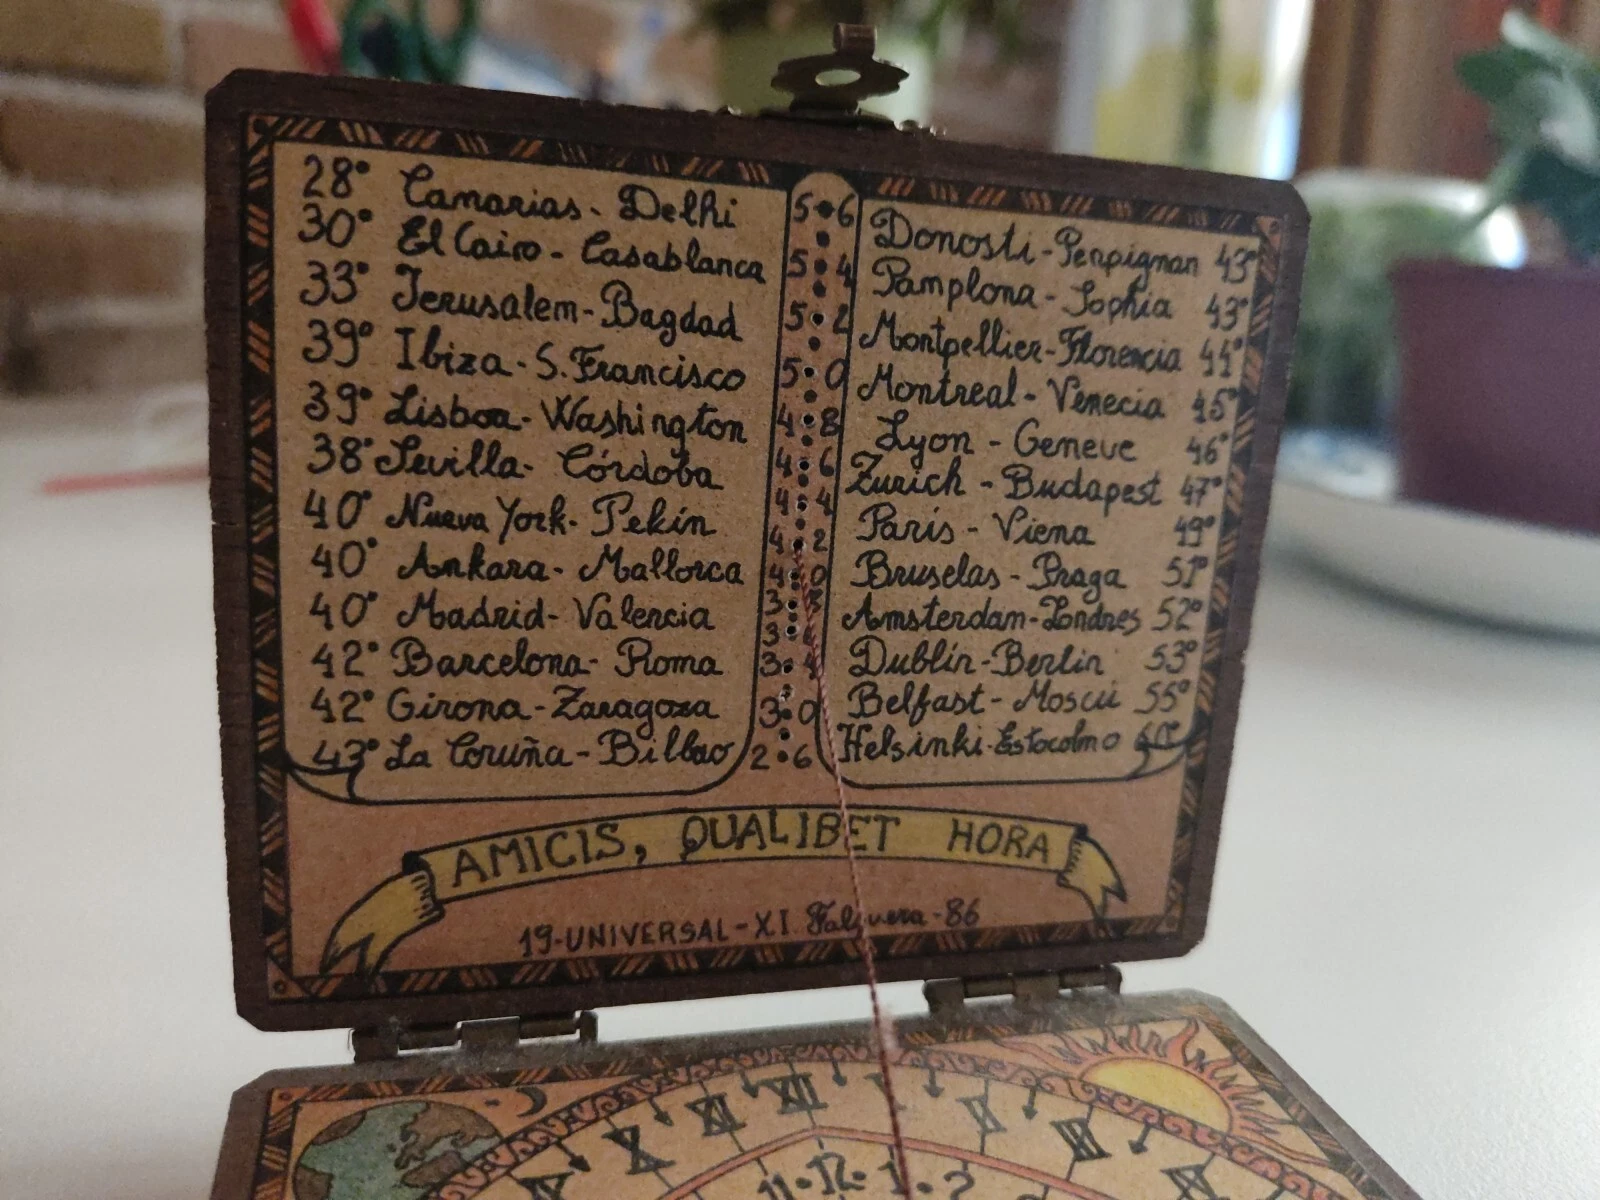 28° Canarias - Delhi
30° El Cairo - Casablanca
33° Jerusalem - Bagdad
39° Ibiza - S. Francisco
39° Lisboa - Washington
38° Sevilla - Córdoba
40° Nueva York - Pekín
40° Ankara - Mallorca
40° Madrid - Valencia
42° Barcelona - Roma
42° Girona - Zaragoza
43° La Coruña - Bilbao
5•6
5•4
5•2
5•0
4•8
4•6
4•4
4•2
4•0
3•8
3•6
3•4
3•0
2•6
Donosti - Perpignan 43°
Pamplona - Sophia 43°
Montpellier - Florencia 44°
Montreal - Venecia 45°
Lyon - Geneve 46°
Zurich - Budapest 47°
París - Viena 49°
Bruselas - Praga 51°
Amsterdam - Londres 52°
Dublín - Berlín 53°
Belfast - Moscú 55°
Helsinki - Estocolmo 60°
AMICIS, QUALIBET HORA
19-UNIVERSAL-XI. 86
X XI XII I II III
11 • 12 • 1 • 2